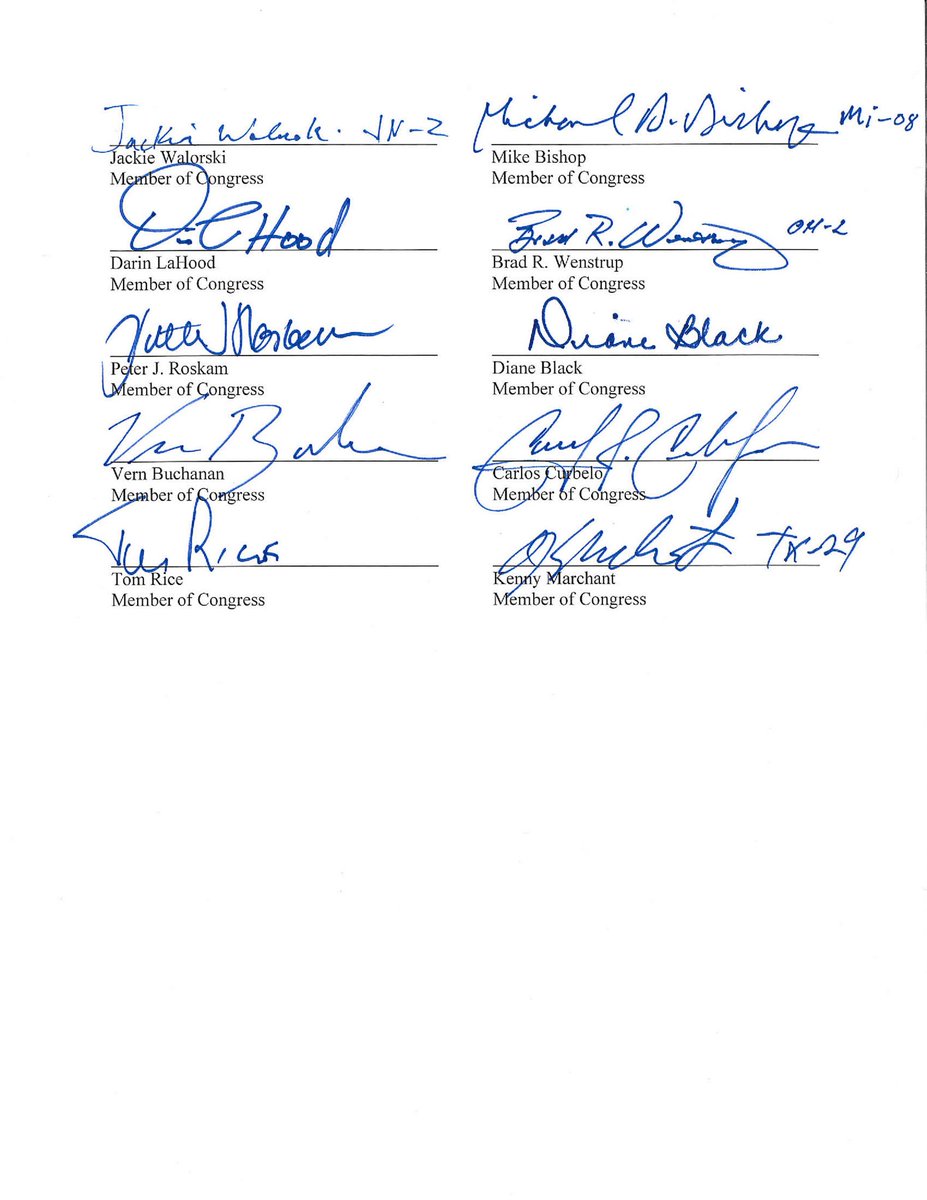 Jackie Walorski IN-2
Michael D. Bishop Mi-08
Jackie Walorski
Mike Bishop
Member of Congress
Member of Congress
LaHood
Brad R. Wenstrup OH-2
Darin LaHood
Brad R. Wenstrup
Member of Congress
Member of Congress
Peter J Roskam
Diane Black
Peter J. Roskam
Diane Black
Member of Congress
Member of Congress
Vern Buchanan
Carlos Curbelo
Member of Congress
Member of Congress
Tom Rice
TX-24
Tom Rice
Kenny Marchant
Member of Congress
Member of Congress